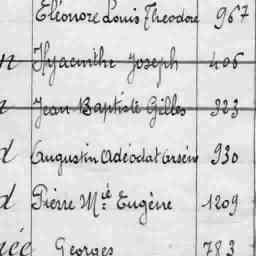 Eléonore Louis Théodore 967
Hyacinthe Joseph 406
Jean Baptiste Gilles 323
Augustin Adéodat Arsène 930
Pierre Mie Eugène 1209
Georges 783